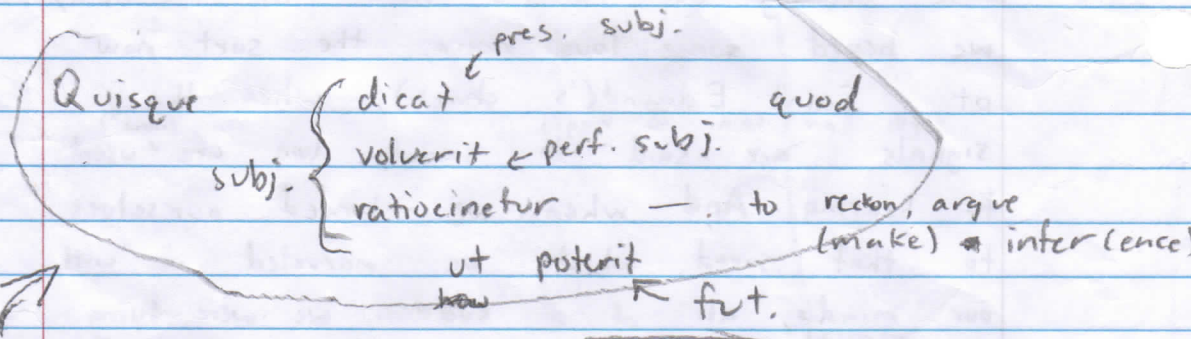 pres. subj.
Quisque dicat quod
volverit perf. subj.
subj.
ratiocinetur —. to reckon, argue
(make) inter(ence)
ut poterit
how fut.